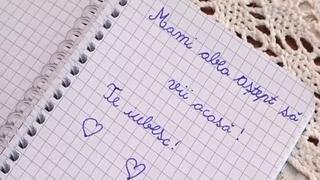 Mami abia aștept să
vii acasă!
Te iubesc!